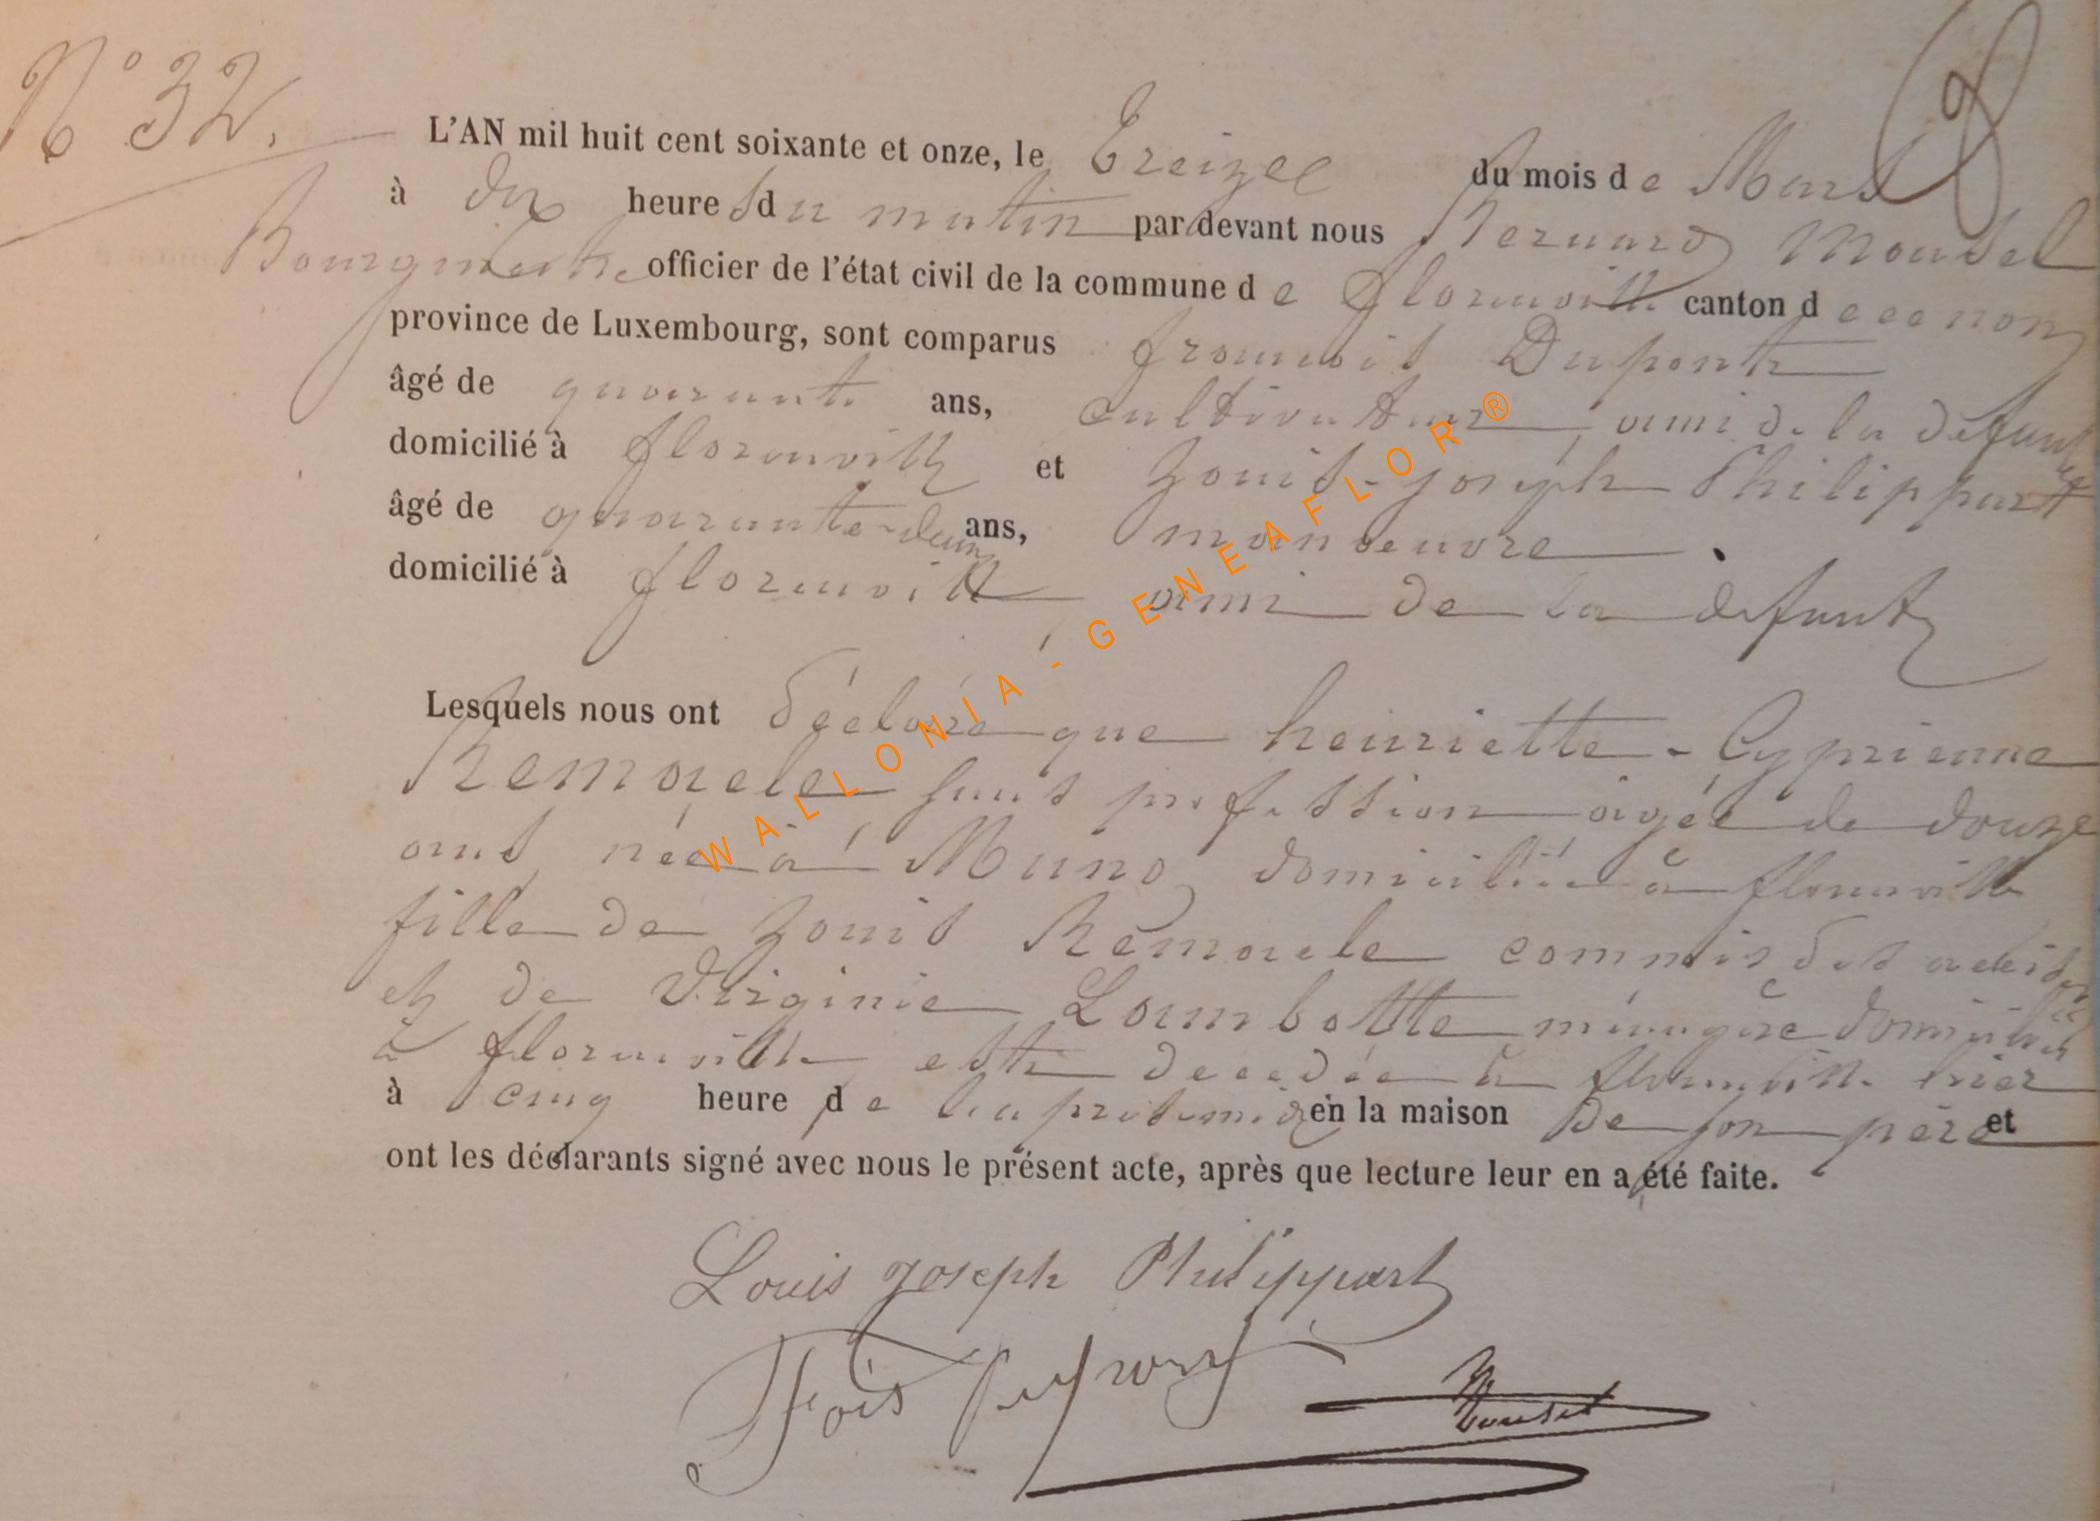 N° 32.
L'AN mil huit cent soixante et onze, le Treize du mois de Mars
à dix heures du matin par devant nous Bernard Mousel
Bourgmestre officier de l'état civil de la commune de florenville canton de ce nom
province de Luxembourg, sont comparus francois Dupont
âgé de quarante ans, cultivateur ami de la défunte
domicilié à florenville et Louis-joseph Philippart
âgé de quarante-deux ans, manoeuvre
domicilié à florenville ami de la défunte
Lesquels nous ont déclaré que henriette-Cyprienne
Remacle sans profession agée de douze
ans née à Muno, domiciliée à florenville
fille de Louis Remacle commis des accises
et de Virginie Lambotte ménagère domiciliés
à florenville est décedée à florenville hier
à cinq heure de l'aprésmidi en la maison de son père et
ont les déclarants signé avec nous le présent acte, après que lecture leur en a été faite.
Louis joseph Philippart
Fçois Dupont
Mousel
WALLONIA - GENEAFLOR®